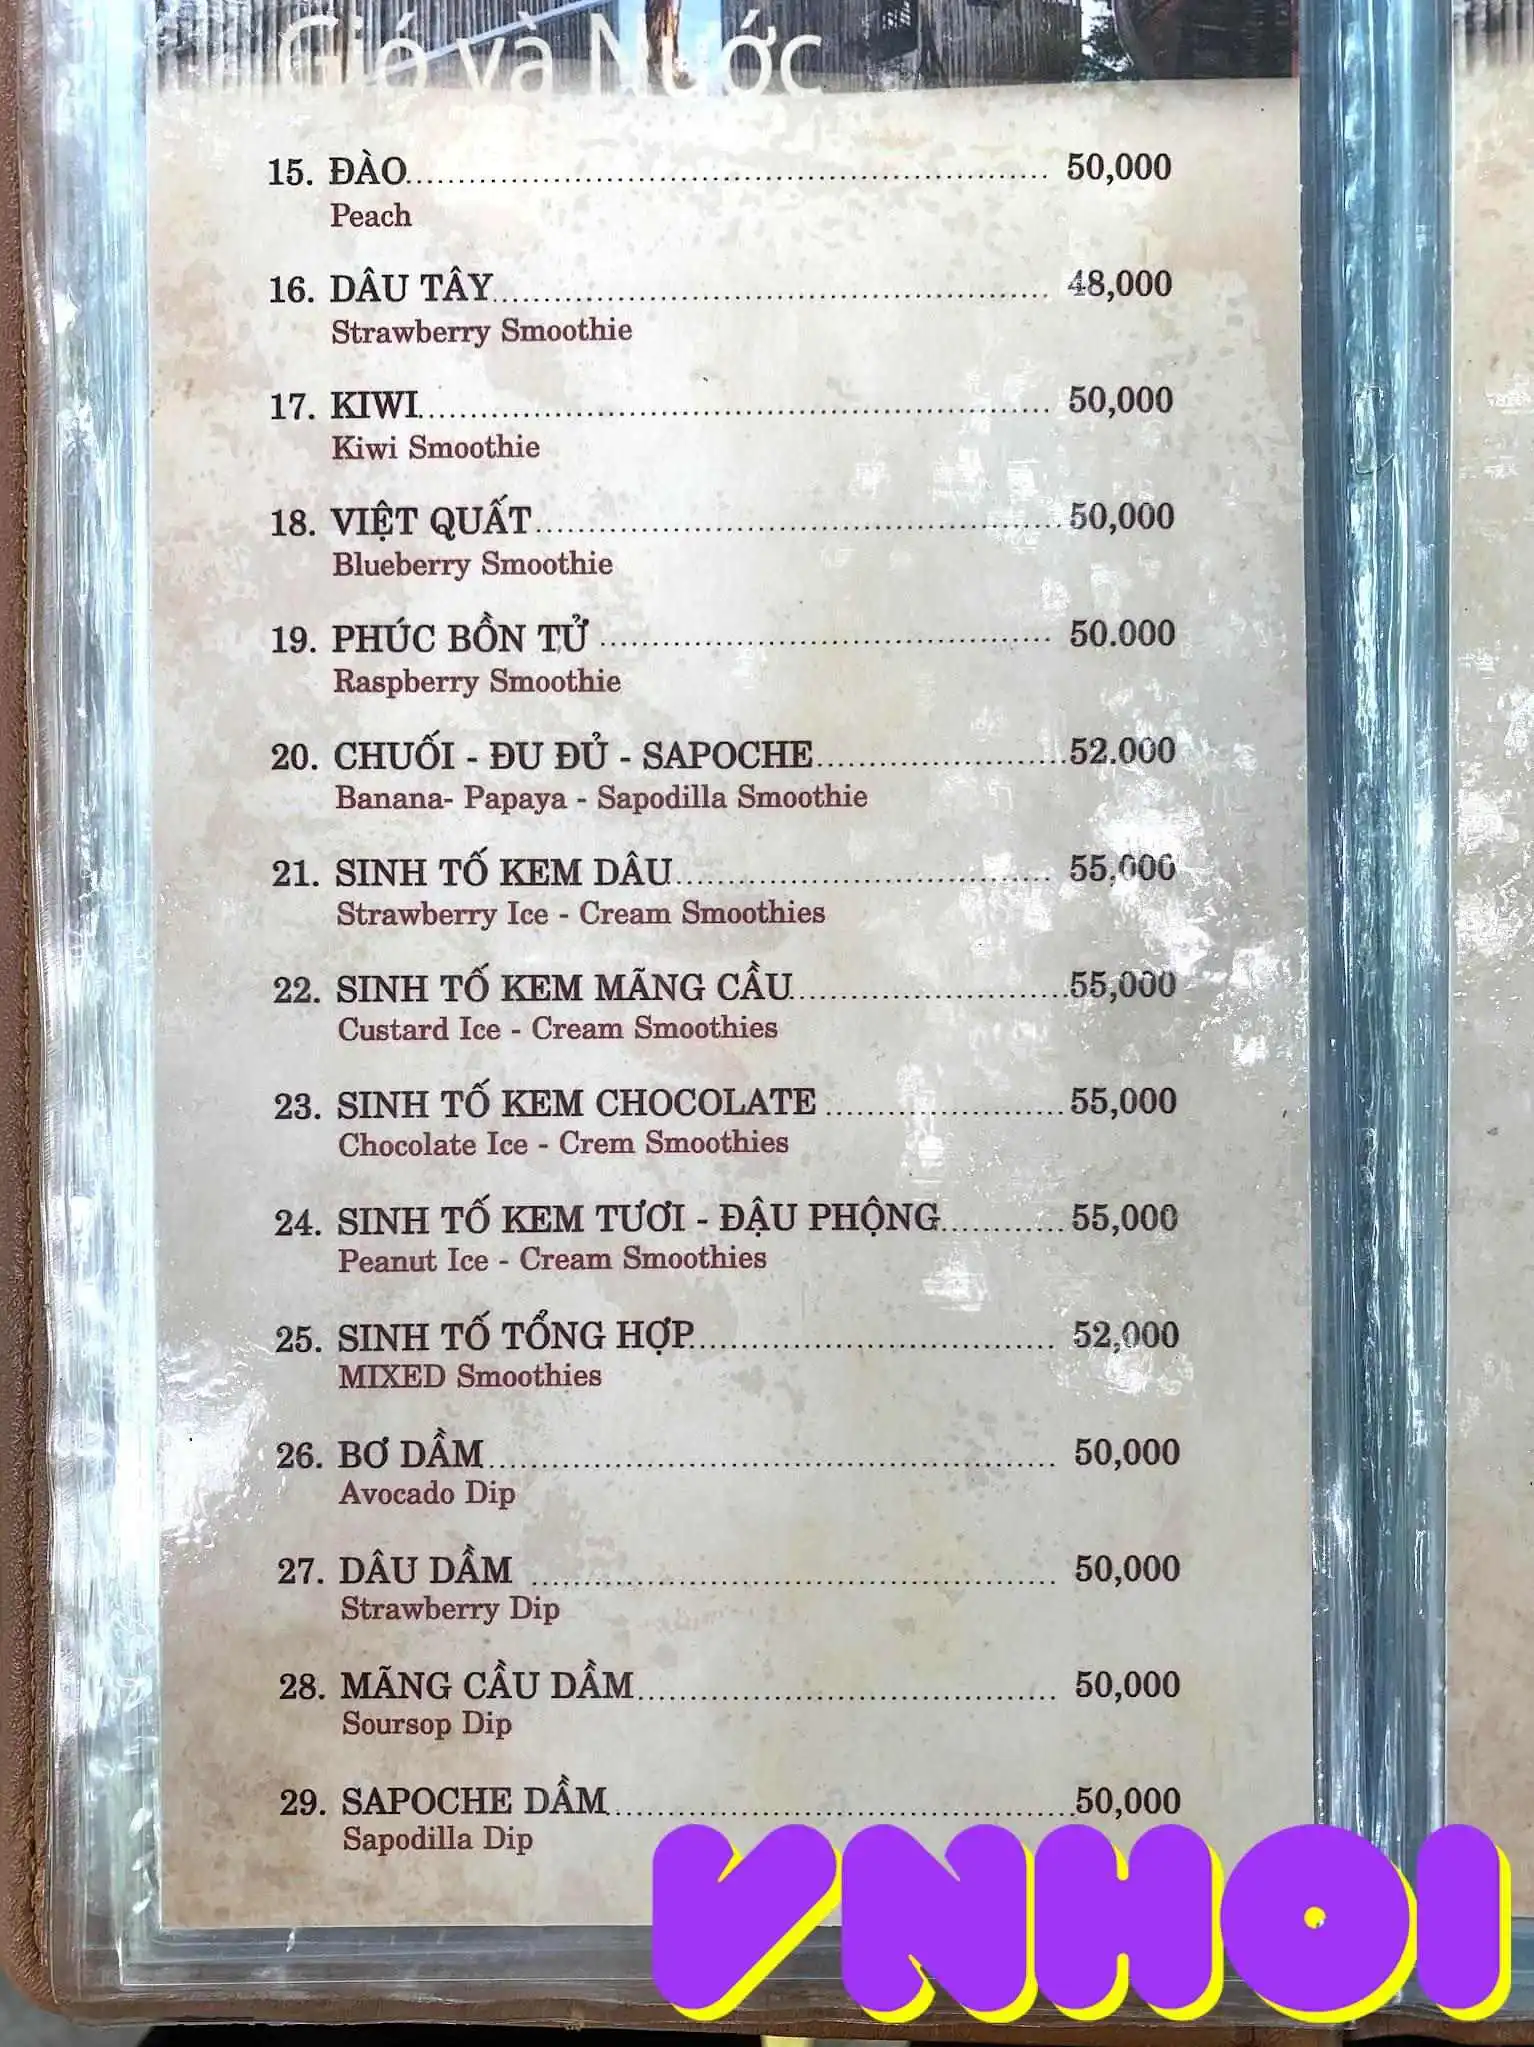 Gió và Nước
15. ĐÀO 50,000
Peach
16. DÂU TÂY 48,000
Strawberry Smoothie
17. KIWI 50,000
Kiwi Smoothie
18. VIỆT QUẤT 50,000
Blueberry Smoothie
19. PHÚC BỒN TỬ 50.000
Raspberry Smoothie
20. CHUỐI - ĐU ĐỦ - SAPOCHE 52.000
Banana- Papaya - Sapodilla Smoothie
21. SINH TỐ KEM DÂU 55,000
Strawberry Ice - Cream Smoothies
22. SINH TỐ KEM MÃNG CẦU 55,000
Custard Ice - Cream Smoothies
23. SINH TỐ KEM CHOCOLATE 55,000
Chocolate Ice - Crem Smoothies
24. SINH TỐ KEM TƯƠI - ĐẬU PHỘNG 55,000
Peanut Ice - Cream Smoothies
25. SINH TỐ TỔNG HỢP 52,000
MIXED Smoothies
26. BƠ DẦM 50,000
Avocado Dip
27. DÂU DẦM 50,000
Strawberry Dip
28. MÃNG CẦU DẦM 50,000
Soursop Dip
29. SAPOCHE DẦM 50,000
Sapodilla Dip
VNHOI